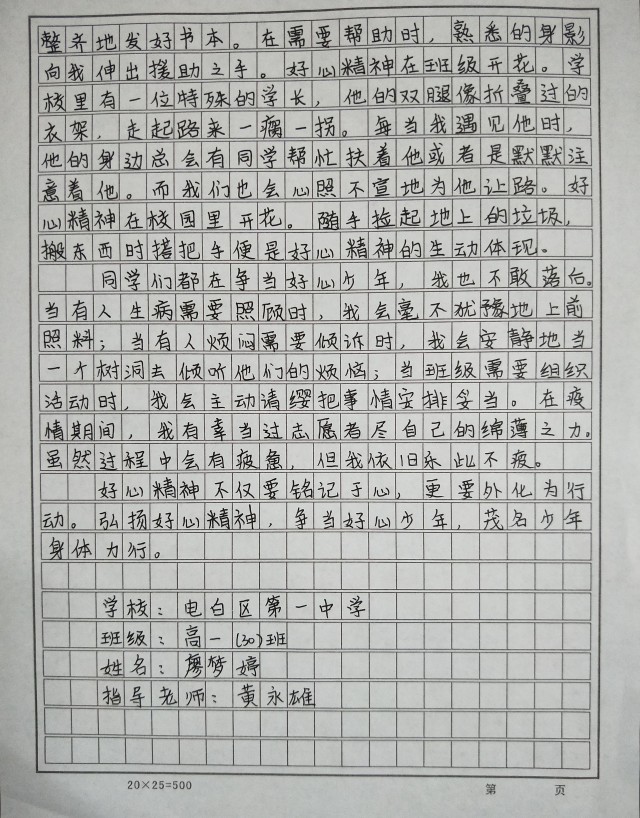 整齐地发好书本。在需要帮助时，熟悉的身影
向我伸出援助之手。好心精神在班级开花。学
校里有一位特殊的学长，他的双腿像折叠过的
衣架，走起路来一瘸一拐。每当我遇见他时，
他的身边总会有同学帮忙扶着他或者是默默注
意着他。而我们也会心照不宣地为他让路。好
心精神在校园里开花。随手捡起地上的垃圾，
搬东西时搭把手便是好心精神的生动体现。
同学们都在争当好心少年，我也不敢落后。
当有人生病需要照顾时，我会毫不犹豫地上前
照料；当有人烦闷需要倾诉时，我会安静地当
一个树洞去倾听他们的烦恼；当班级需要组织
活动时，我会主动请缨把事情安排妥当。在疫
情期间，我有幸当过志愿者尽自己的绵薄之力。
虽然过程中会有疲惫，但我依旧乐此不疲。
好心精神不仅要铭记于心，更要外化为行
动。弘扬好心精神，争当好心少年，茂名少年
身体力行。
学校：电白区第一中学
班级：高一（30）班
姓名：廖梦婷
指导老师：黄永雄
20×25=500 第 页